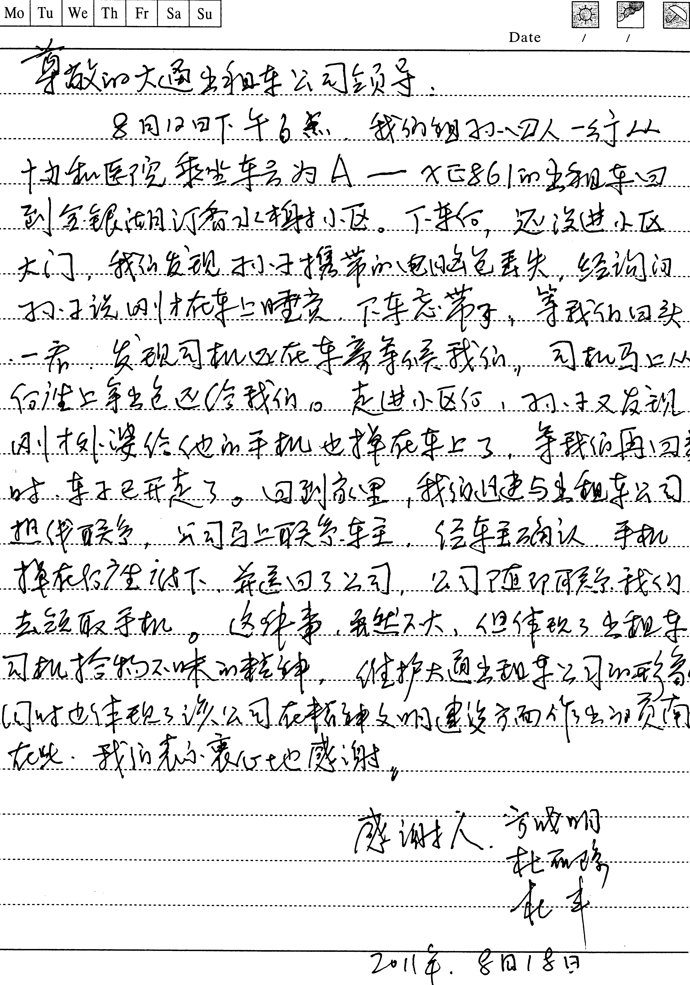 Mo Tu We Th Fr Sa Su
Date / /
尊敬的大通出租车公司领导:
8月12日下午6点 我们祖孙四人一行从
十九机医院乘坐车号为A—XE861的出租车回
到金银湖汀香水榭小区。下车后,还没进小区
大门,我们发现孙子携带的电脑包丢失,经询问
孙子说刚才在车上睡觉,下车忘带了,等我们回头
一看,发现司机还在车旁等候我们,司机马上从
后座上拿出包还给我们。走进小区后,孙子又发现
刚才外婆给他的手机也掉在车上了,等我们再回头
时,车子已开走了。回到家里,我们迅速与出租车公司
热线联系,公司马上联系车主,经车主确认,手机
掉在后座底下,并送回了公司,公司随即联系我们
去领取手机。这件事,虽然不大,但体现了出租车
司机拾物不昧的精神,维护大通出租车公司的形象
同时也体现了该公司在精神文明建设方面作出的贡献
在此,我们表示衷心地感谢。
感谢人:
杜
2011年.8月18日